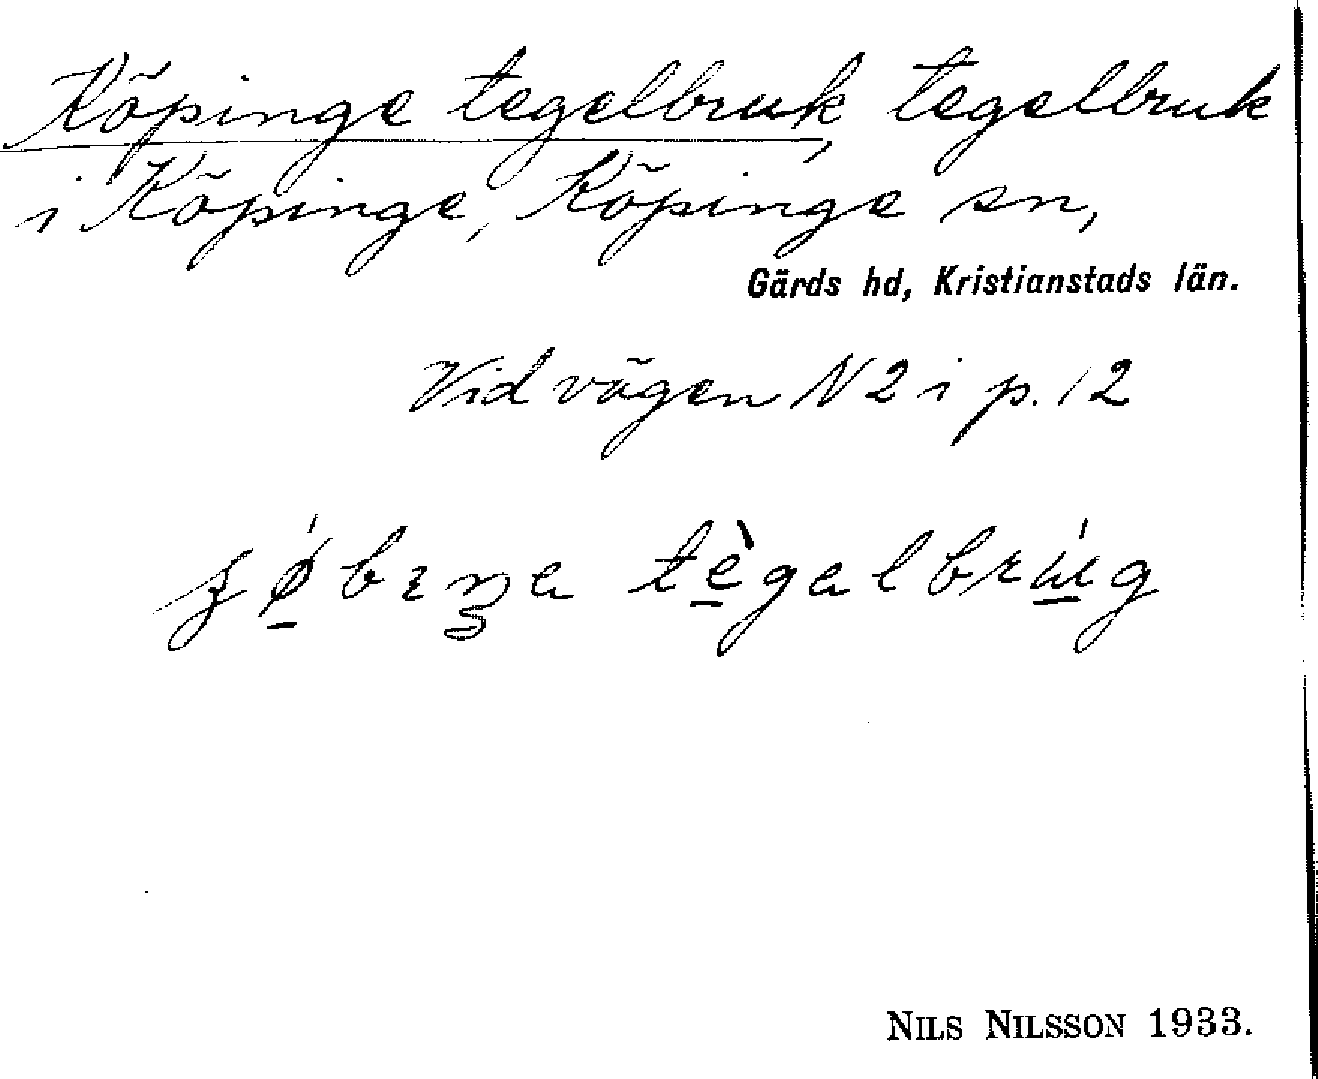 Köpinge tegelbruk, tegelbruk
i Köpinge, Köpinge sn,
Gärds hd, Kristianstads län.
Vid vägen N 2 i p. 12
tègalbrúg
NILS NILSSON 1933.